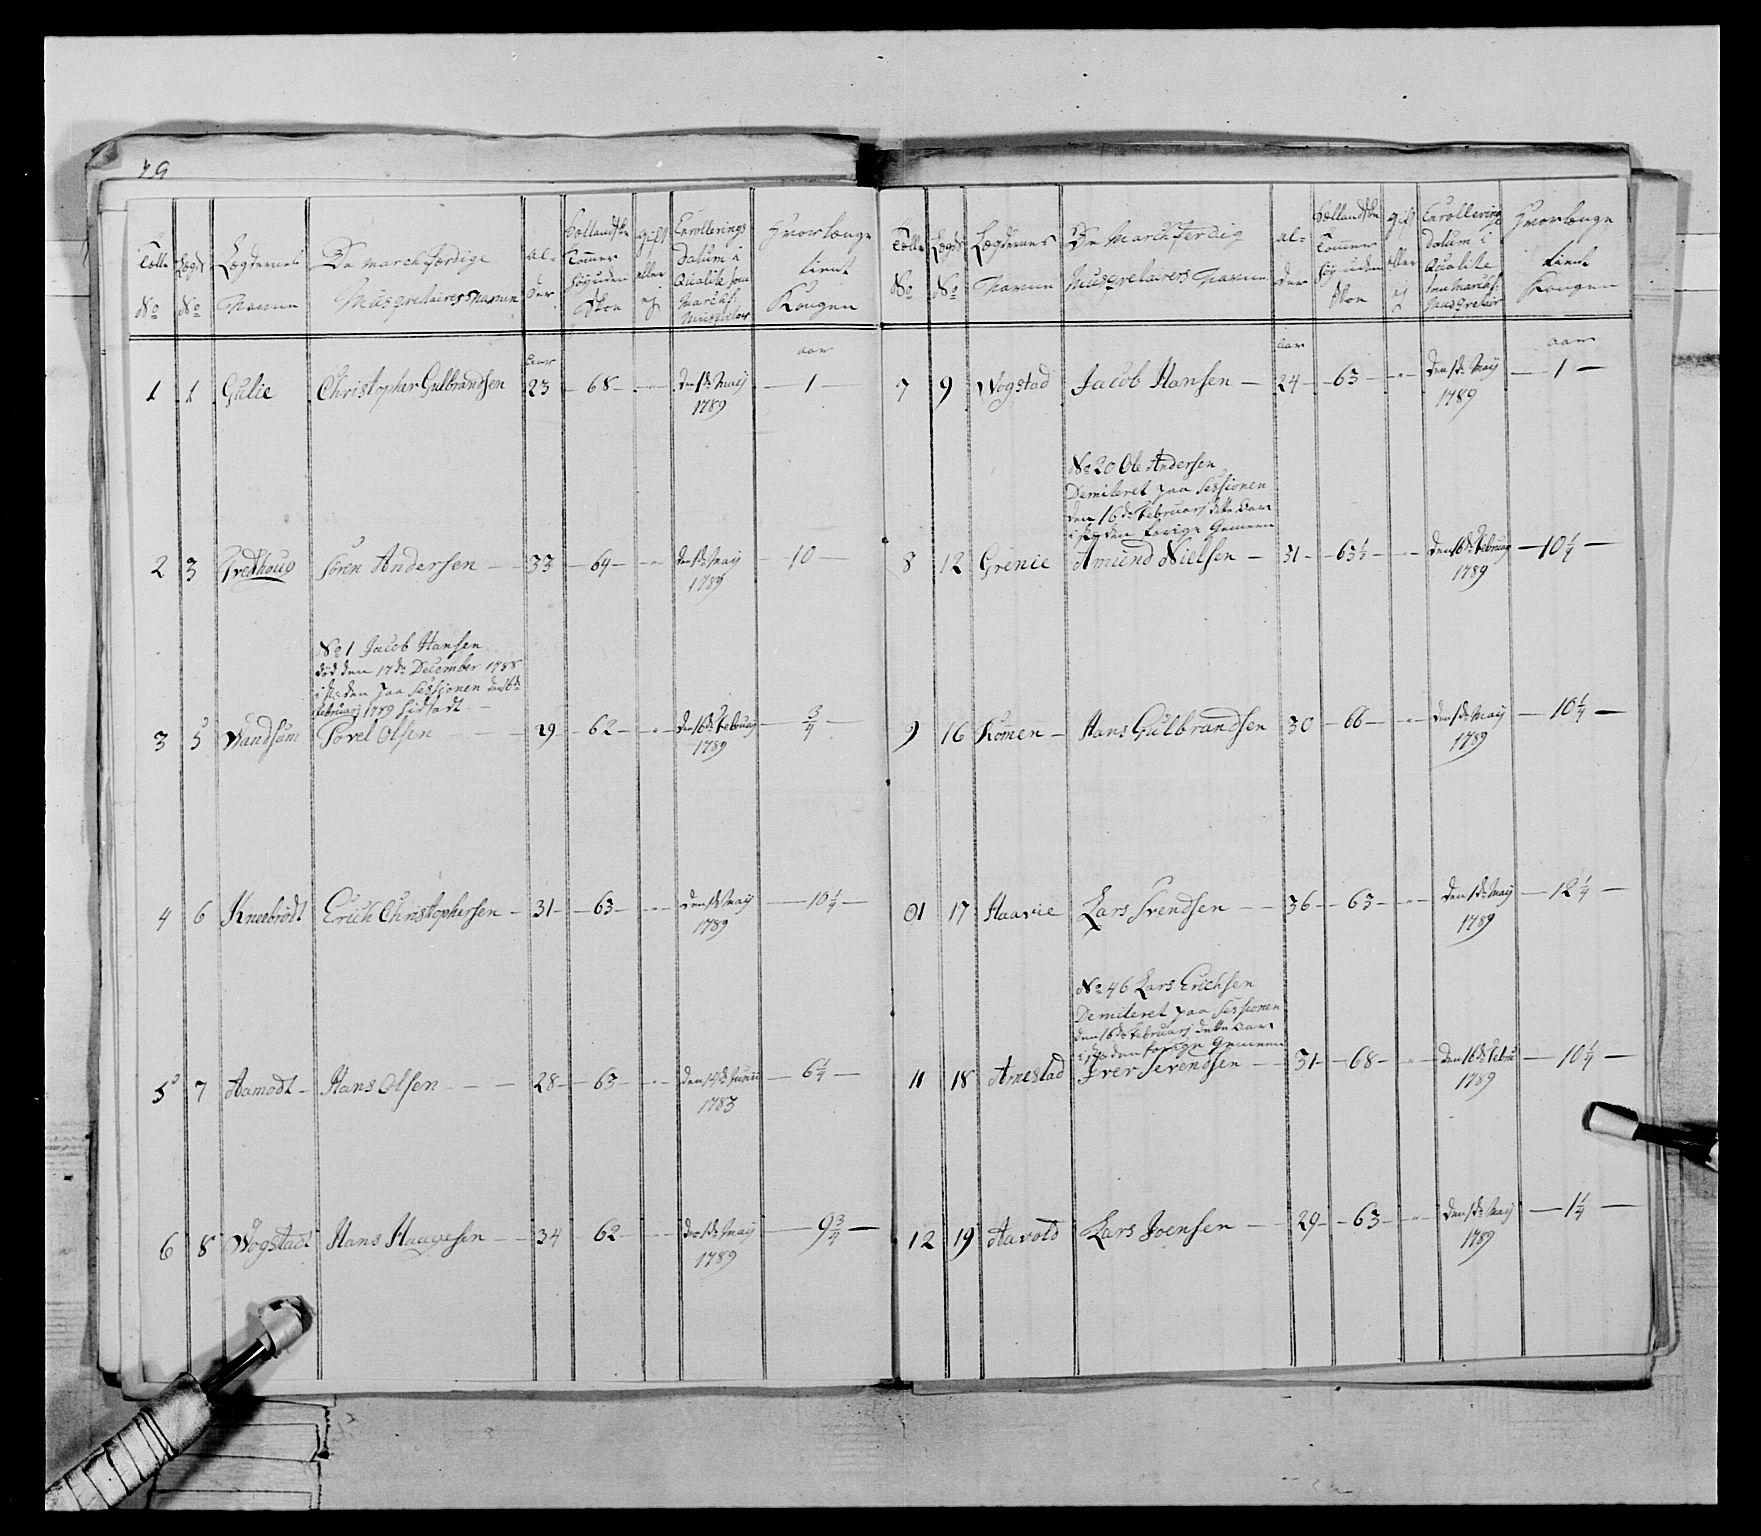 Tolle No
Lægds No
Lægdernes Navne
De marchfærdige Musqvetairers Navne
Alder
Hollandske Tommer høy uden Skoe
Gift eller ej
Enrollerings Datum i Qualite som Marchf: Musqvetair
Hvorlænge tient Kongen
Aar
aar
1 1 Gulie Christopher Gulbrandsen 23 - 68 - - den 1de Maij 1789 - 1 -
2 3 Qvedhoug Sören Andersen - 33 - 64 - - den 1de Maij 1789 - 10 -
No 1 Jacob Hansen
död den 17de December 1788
i steden paa Sessionen den 16de
Februarj 1789 hidsadt. -
3 5 Wandsum Povel Olsen - 29 - 62 - - den 16de Februarj 1789 - 3/4 -
4 6 Kneebrödt Erich Christophersen - 31 - 63 - - den 1de Maij 1789 - 10 1/4 -
5 7 Aamodt - Hans Olsen - 28 - 63 - - den 14de Junii 1783 - 6 1/4 -
6 8 Wogstadt Hans Haagesen - 34 62 - - den 1de Maij 1789 - 9 3/4 -
Tolle No
Lægds No
Lægdernes Navne
De Marchferdig Musqvetairers Navne
Alder
Hollandske Tommer høy uden Skoe
Gift eller ej
Enrollerings Datum i Qualite som Marchf: Musqvetair
Hvorlænge tient Kongen
Aar
aar
7 9 Wogstad Jacob Hansen - 24 - 63 - - den 1de Maij 1789 - 1 -
No 20 Ole Andersen
Demiteret paa Sessionen
den 16de Februarj dette Aar
i steden forige Gemeen
8 12 Grenie Amund Nielsen - 31 - 63 1/2 - - den 16de Februarj 1789 - 10 1/4 -
9 16 Komen - Hans Gulbrandsen 30 - 66 - - den 1de Maij 1789 - 10 1/4 -
01 17 Haavie Lars Svendsen - 36 - 63 - - den 1de Maij 1789 - 12 1/4 -
No 46 Lars Erichsen
Demiteret paa Sessionen
den 16de Februarj dette Aar
i steden forige Gemeen
11 18 Arnestad Iver Severdsen - 31 - 68 - - den 16de Febru 1789 - 10 1/4 -
12 19 Aavold Lars Joensen - 29 - 63 - - den 1de Maij 1789 - 1 1/4 -